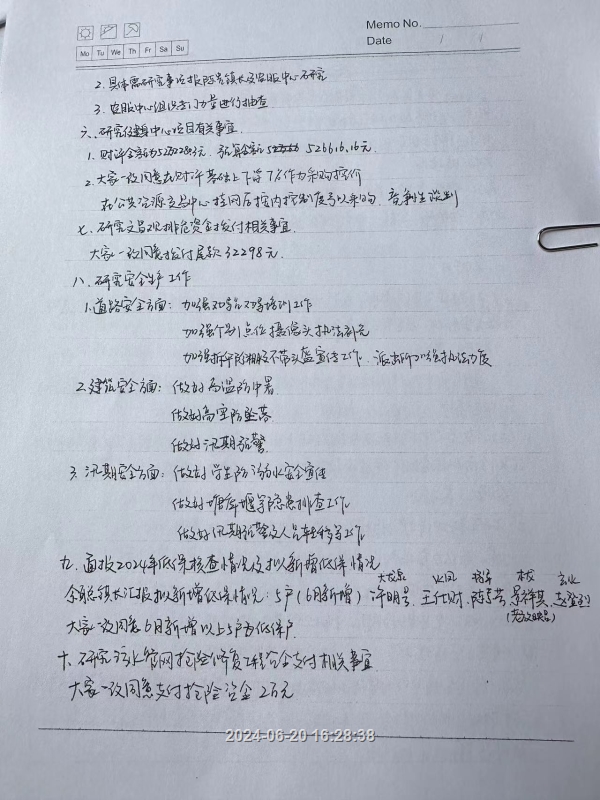 Memo No.
Mo Tu We Th Fr Sa Su
Date / /
2. 具体需研究事项报陈岩镇长及客服中心研究
3. 客服中心组织专门力量进行抽查
六、研究健身中心项目有关事宜
1. 财评金额为元, 预算金额 526616.16元
2. 大家一致同意在财评基础上下浮7%作为采购控价
在公共资源交易中心挂网后按内控制度予以采购, 竞争性谈判
七、研究文昌观排危资金拨付相关事宜
大家一致同意拨付尾款32298元.
八、研究安全生产工作
1. 道路安全方面: 加强劝导员劝导培训工作
加强个别点位摄像头执法补充
加强摔不带头盔宣传工作, 派出所加强执法力度
2. 建筑安全方面: 做好高温防中暑
做好高空防坠落
做好汛期预警
3. 汛期安全方面: 做好学生防溺水安全宣传
做好塘库堰等隐患排查工作
做好汛期预警及人员转移等工作
九、通报2024年低保核查情况及拟新增低保情况
镇长汇报拟新增低保情况: 5户 (6月新增) 许明号、王仕财、陈
大家一致同意6月新增以上5户为低保户.
十、研究污水管网抢险修复工程资金支付相关事宜
大家一致同意支付抢险资金2万元
2024-06-20 16:28:38